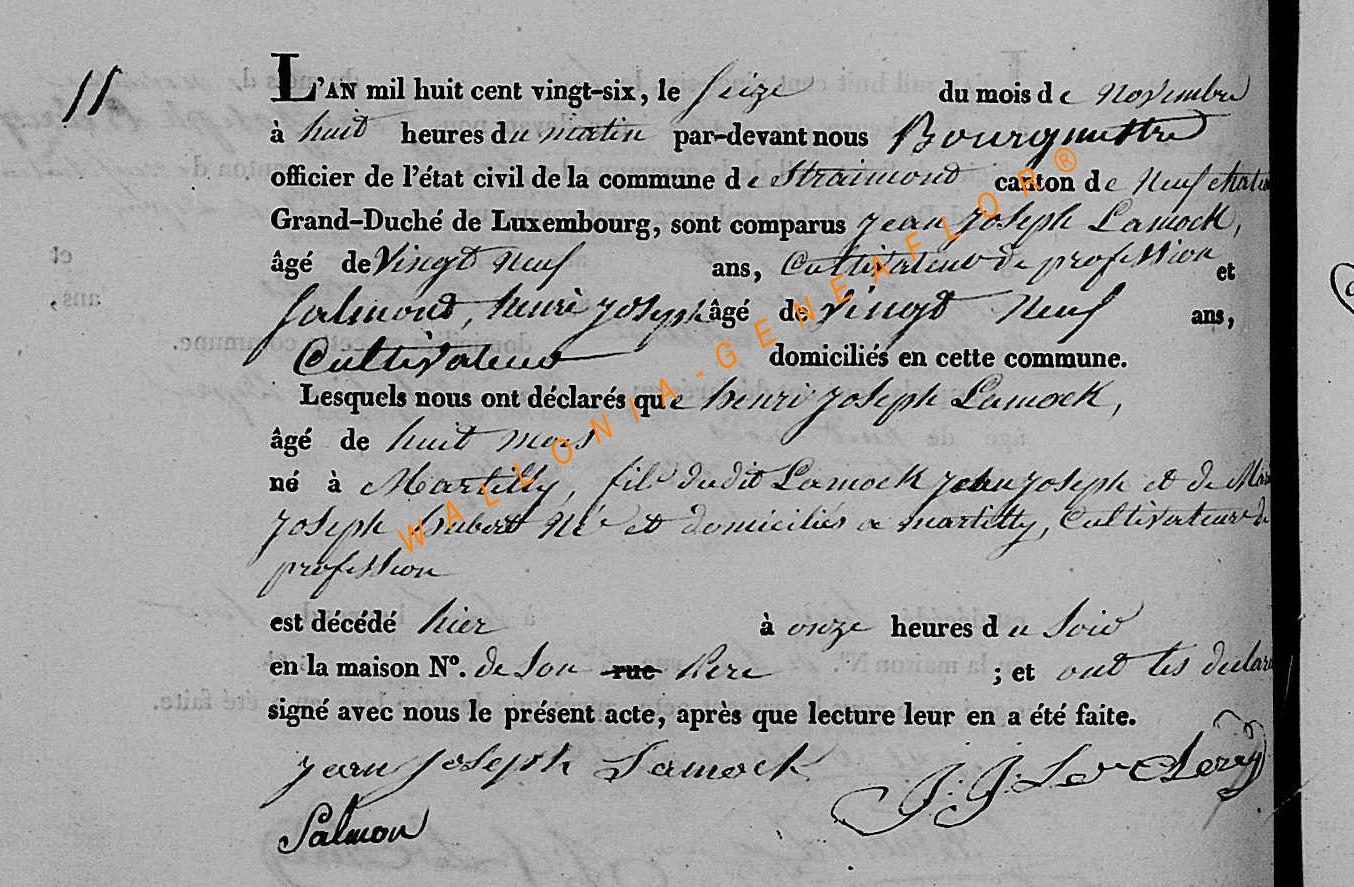 11
L'AN mil huit cent vingt-six, le seize du mois de novembre
à huit heures du matin par-devant nous Bourgmettre
officier de l'état civil de la commune de Straimond canton de Neufchateau
Grand-Duché de Luxembourg, sont comparus jean joseph Lamock,
âgé de Vingt Neuf ans, Cultivateur de profession et
Salmond, henri joseph âgé de Vingt Neuf ans,
Cultivateur domiciliés en cette commune.
Lesquels nous ont déclarés que henri joseph Lamock,
âgé de huit mois
né à Martilly, fils dudit Lamock jean joseph et de
joseph hubert Né et domiciliés a martilly, Cultivateur de
profession
est décédé hier à onze heures du Soir
en la maison Nº. de Son rue Pere ; et ont les
signé avec nous le présent acte, après que lecture leur en a été faite.
jean joseph Lamock
J. J. Le Clercq
Salmon
WALLONIA-GENEAFLOR®